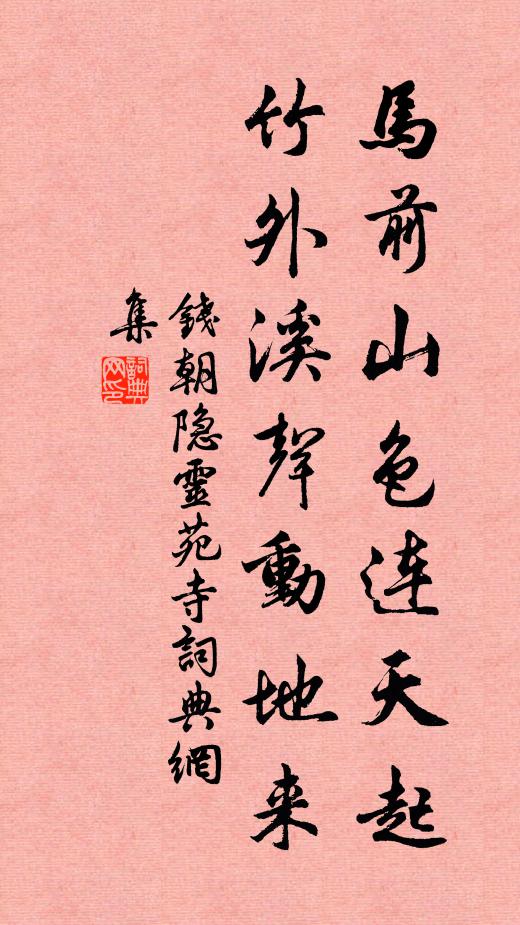 馬前山色連天起
竹外溪聲動地来
錢朝隐靈苑寺詞典網
集
詞典网印